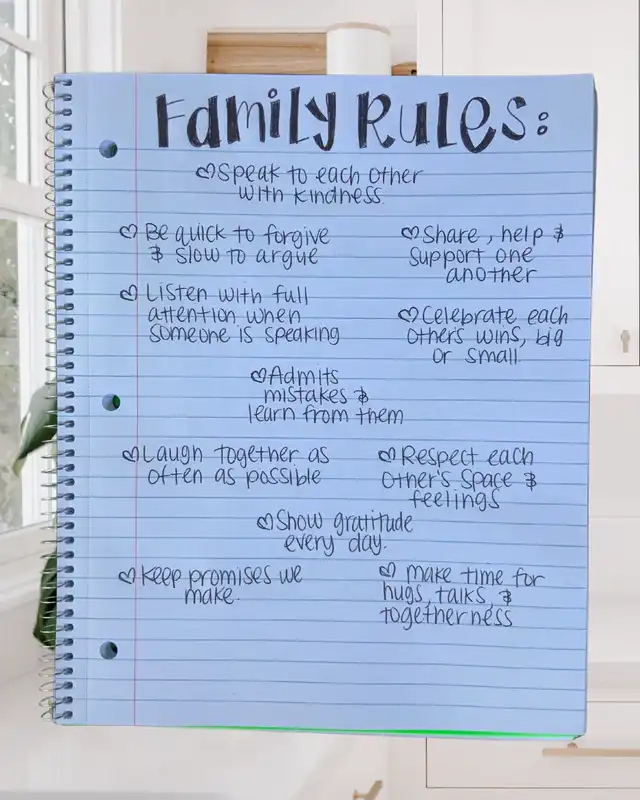 Family Rules:
♡Speak to each other
with kindness.
♡ Be quick to forgive
& slow to argue
♡Share, help &
support one
another
♡ Listen with full
attention when
someone is speaking
♡Celebrate each
other's wins, big
or small.
♡Admits
mistakes &
learn from them
♡Laugh together as
often as possible
♡ Respect each
other's space &
feelings
♡Show gratitude
every day.
♡Keep promises we
make.
♡ Make time for
hugs, talks, &
togetherness